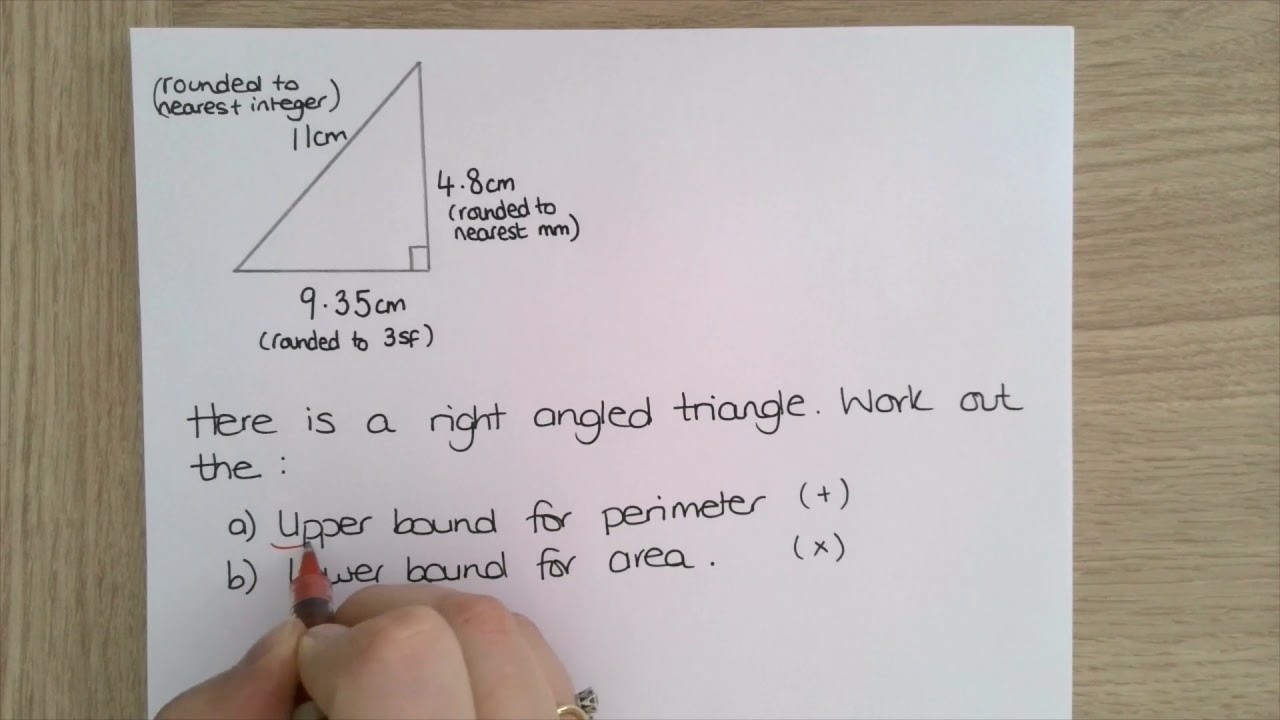 (rounded to
nearest integer)
11cm
4.8cm
(rounded to
nearest mm)
9.35cm
(rounded to 3sf)
Here is a right angled triangle. Work out
the :
a) Upper bound for perimeter (+)
b) Lower bound for area. (x)